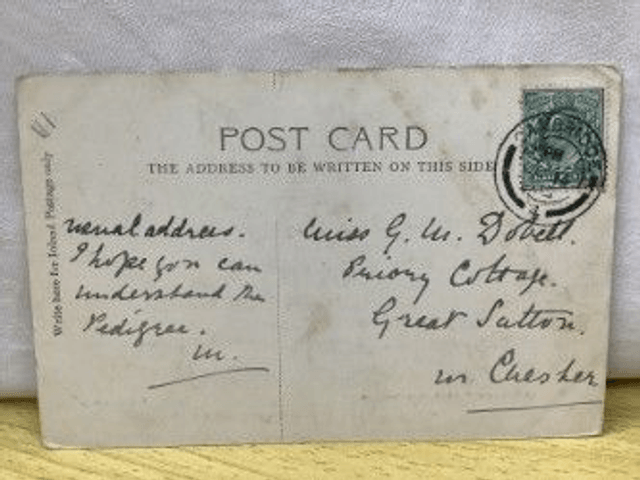 POST CARD
THE ADDRESS TO BE WRITTEN ON THIS SIDE
Write here for Inland Postage only
usual address.
I hope you can
understand the
Pedigree.
M.
Miss G. M. Dobell.
Priory Cottage.
Great Sutton.
nr Chester